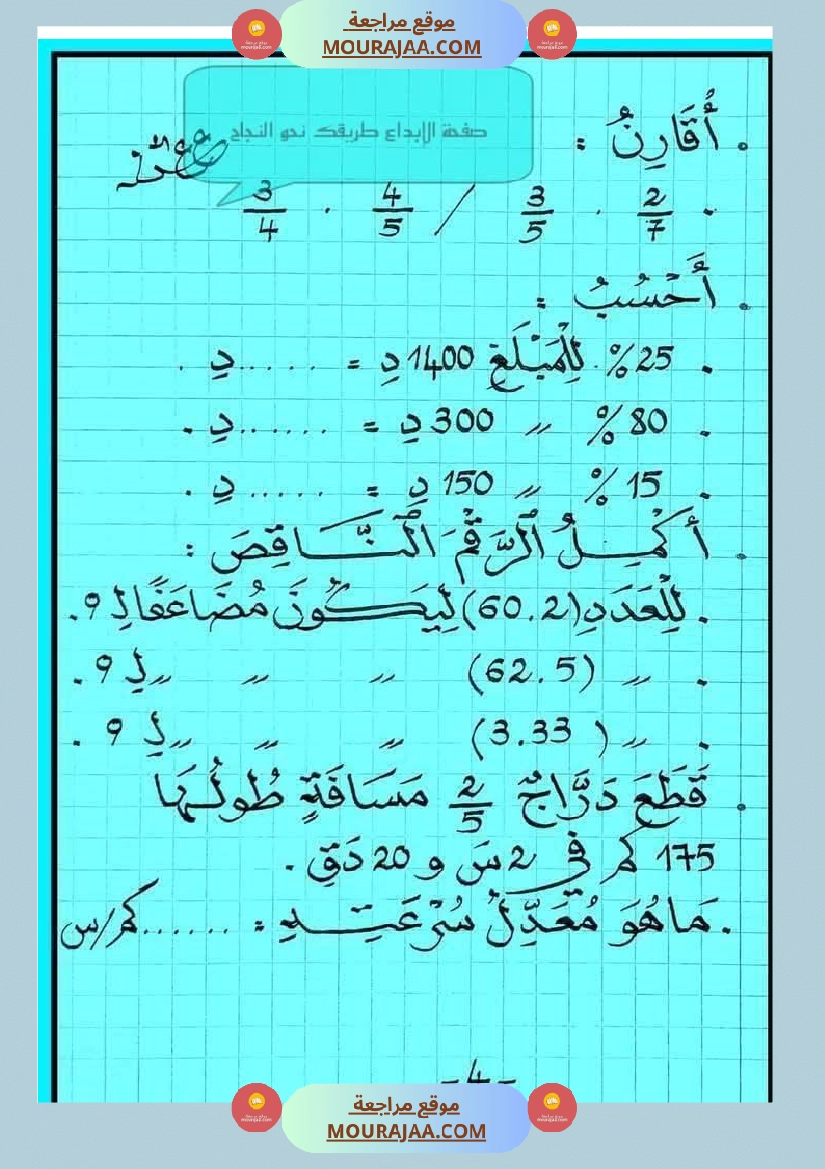 موقع مراجعة
MOURAJAA.COM
صفحة الإبداع طريقك نحو النجاح
• أُقَارِنُ :
• 2/7 . 3/5 / 4/5 . 3/4
• أَحْسُبُ :
• 25% لِلْمَبْلَغِ 1400 دِ = ...... دِ .
• 80% 〃 300 دِ = ...... دِ .
• 15% 〃 150 دِ = ...... دِ .
• أُكْمِلُ الرَّقْمَ النَّاقِصَ :
• لِلْعَدَدِ (60.2) لِيَكُونَ مُضَاعَفًا لِ 9 .
• 〃 (62.5) 〃 〃 〃 لِ 9 .
• 〃 (3.33) 〃 〃 〃 لِ 9 .
• قَطَعَ دَرَّاجٌ 2/5 مَسَافَةٍ طُولُهَا
175 كم في 2 س و 20 دَقِ .
• مَا هُوَ مُعَدِّلُ سُرْعَتِهِ = ...... كم/س
-4-
موقع مراجعة
MOURAJAA.COM